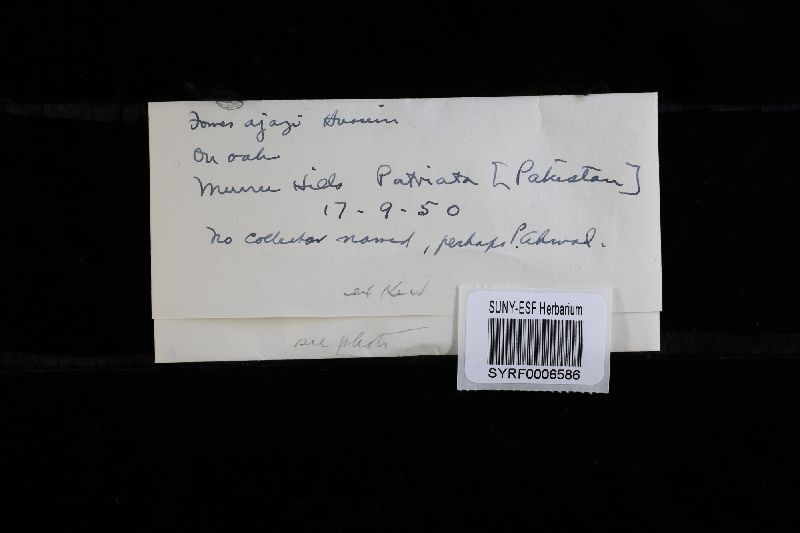 Fomes ajazii Hussein
On oak
Murree Hills Patriata [Pakistan]
17-9-50
No collector named, perhaps S. Ahmad.
ex Kew
see photo
SUNY-ESF Herbarium
SYRF0006586